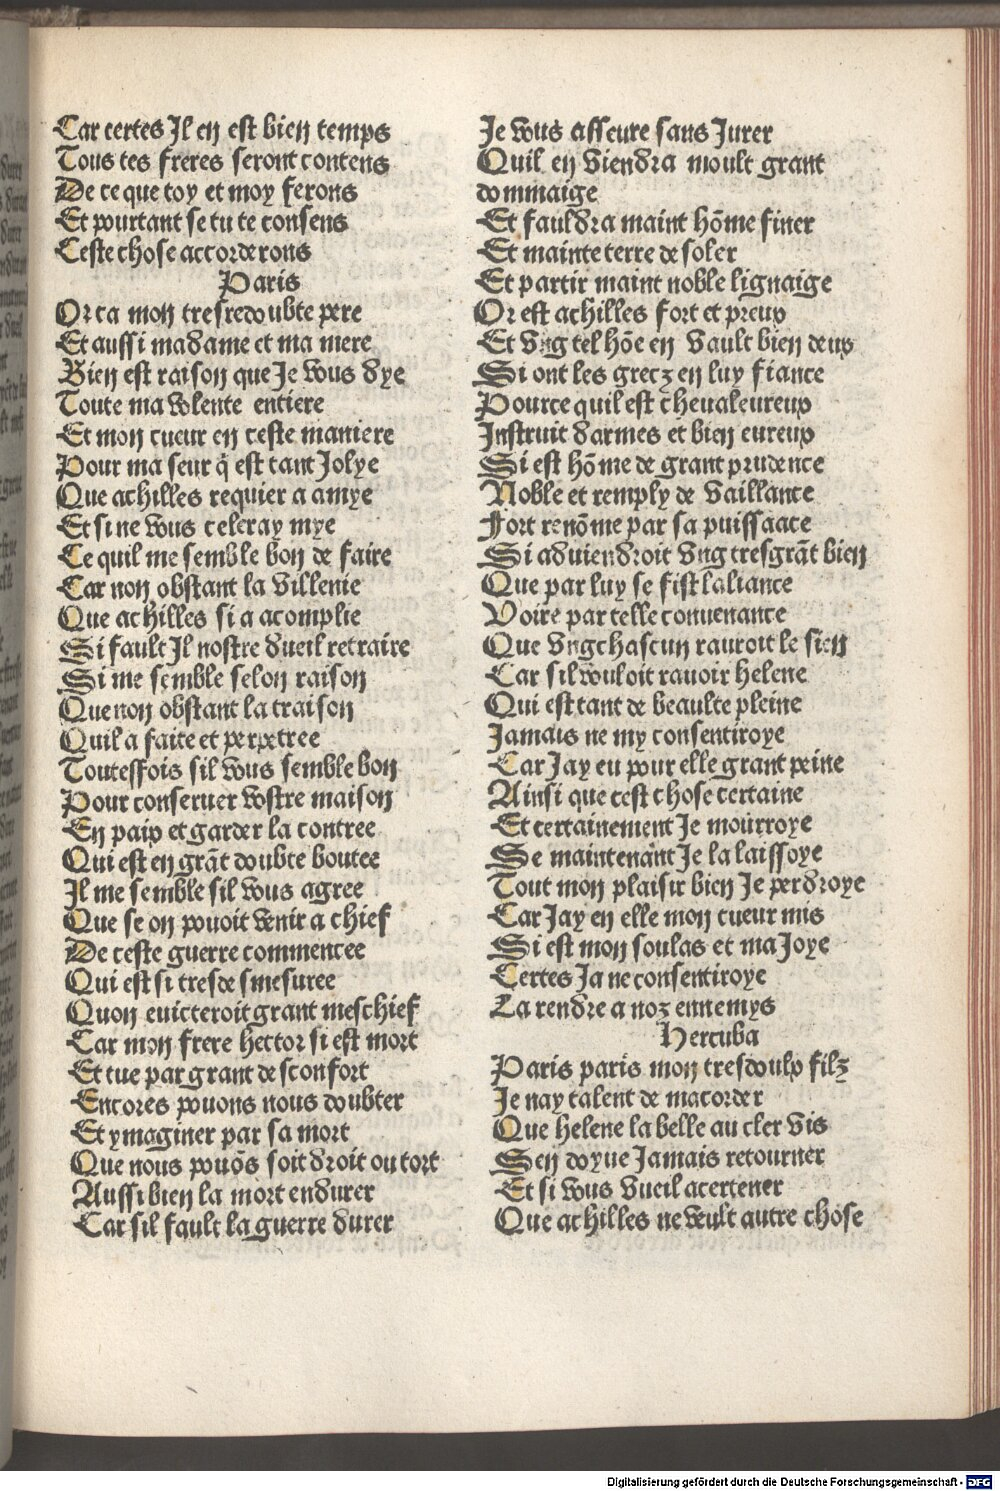 Car certes Il en est bien temps
Tous tes freres seront contens
De ce que toy et moy ferons
Et pourtant se tu te consens
Ceste chose accorderons
Paris
Or ca mon tresredoubte pere
Et aussi madame et ma mere
Bien est raison que Je vous dye
Toute ma volente entiere
Et mon cueur en ceste maniere
Pour ma seur q̄ est tant Jolye
Que achilles requier a amye
Et si ne vous celeray mye
Ce quil me semble bon de faire
Car non obstant la villenie
Que achilles si a acomplie
Si fault Il nostre dueil retraire
Si me semble selon raison
Que non obstant la traison
Quil a faite et perpetree
Toutesfois sil vous semble bon
Pour conseruer vostre maison
En paix et garder la contree
Qui est en grāt doubte boutee
Il me semble sil vous agree
Que se on pouoit venir a chief
De ceste guerre commencee
Qui est si tresdesmesuree
Quon euicteroit grant meschief
Car mon frere hector si est mort
Et tue par grant desconfort
Encores pouons nous doubter
Et ymaginer par sa mort
Que nous pouōs soit droit ou tort
Aussi bien la mort endurer
Car sil fault la guerre durer
Je vous asseure sans Jurer
Quil en viendra moult grant
dommaige
Et fauldra maint hōme finer
Et mainte terre desoler
Et partir maint noble lignaige
Or est achilles fort et preux
Et vng tel hōe en vault bien deux
Si ont les grecz en luy fiance
Pource quil est cheualeureux
Instruit darmes et bien eureux
Si est hōme de grant prudence
Noble et remply de vaillance
Fort renōme par sa puissaace
Si aduiendroit vng tresgrāt bien
Que par luy se fist laliance
Voire par telle conuenance
Que vng chascun rauroit le sien
Car sil vouloit rauoir helene
Qui est tant de beaulte pleine
Jamais ne my consentiroye
Car Jay eu pour elle grant peine
Ainsi que cest chose certaine
Et certainement Je mourroye
Se maintenant Je la laissoye
Tout mon plaisir bien Je perdroye
Car Jay en elle mon cueur mis
Si est mon soulas et ma Joye
Certes Ja ne consentiroye
La rendre a noz ennemys
Hercuba
Paris paris mon tresdoulx filz
Je nay talent de macorder
Que helene la belle au cler vis
Sen doyue Jamais retourner
Et si vous vueil acertener
Que achilles ne veult autre chose
Digitalisierung gefördert durch die Deutsche Forschungsgemeinschaft - DFG